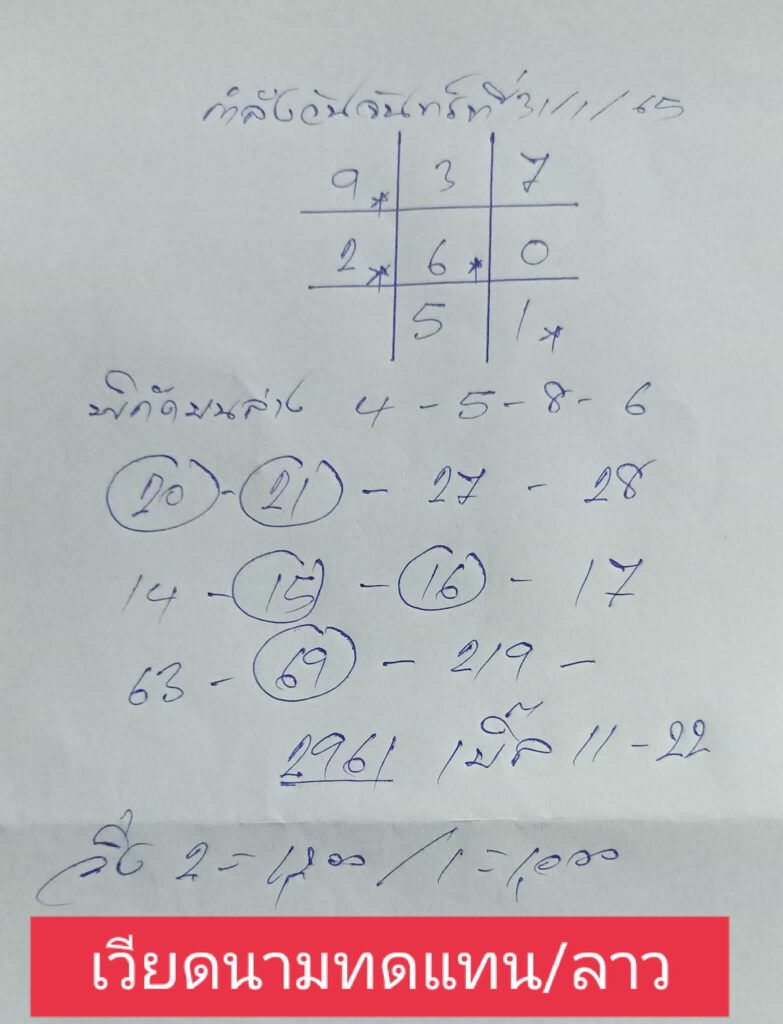 กำลังวันจันทร์ที่ 31/1/65
9* 3 7
2* 6* 0
5 1*
พิกัดบนล่าง 4 - 5 - 8 - 6
20 - 21 - 27 - 28
14 - 15 - 16 - 17
63 - 69 - 219 -
2961 เบิ้ล 11 - 22
วิ่ง 2 = 1,200 / 1 = 1,000
เวียดนามทดแทน/ลาว